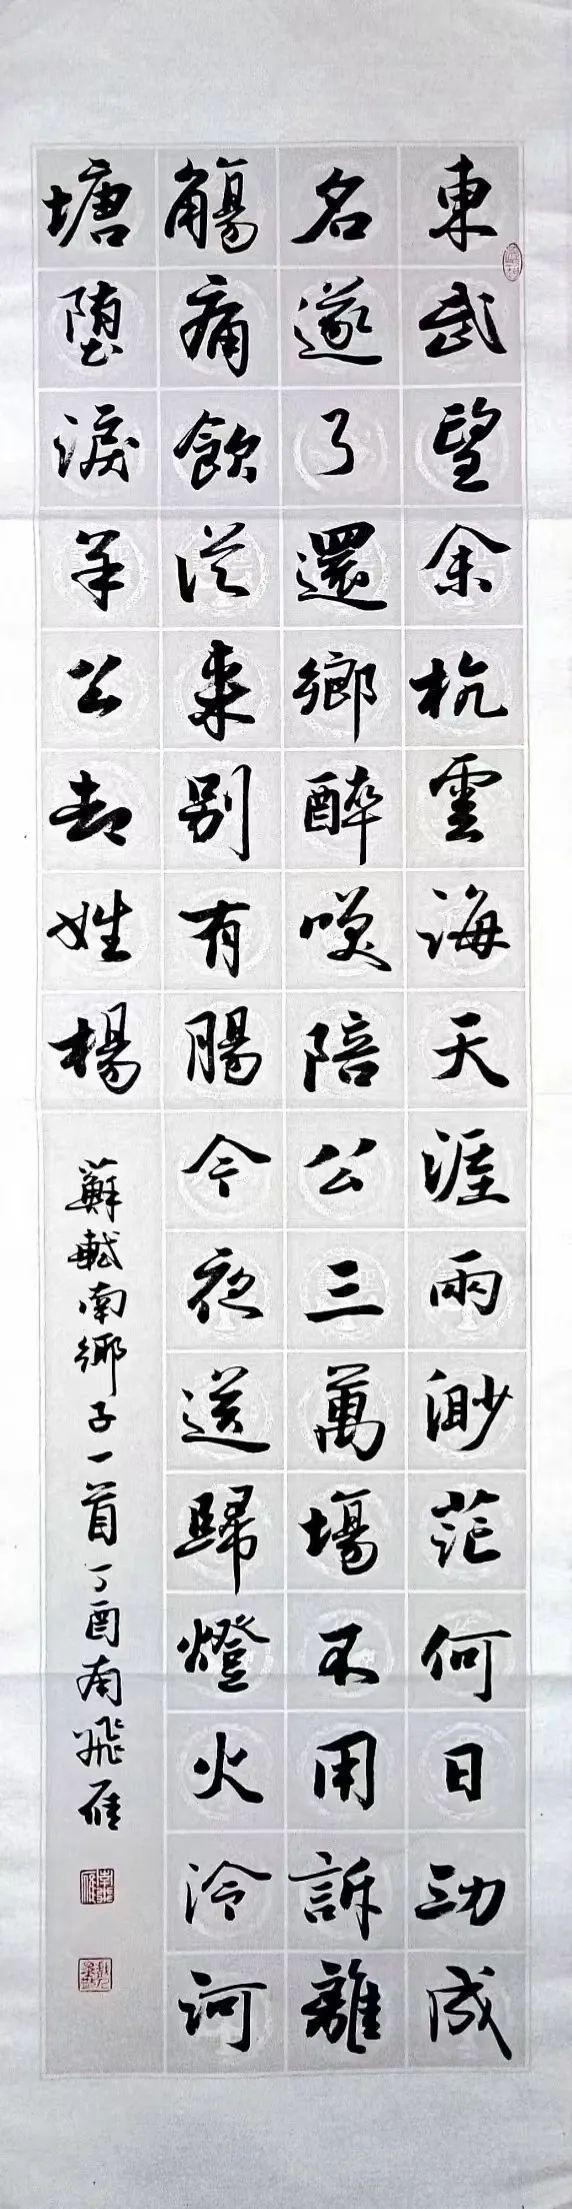 東武望余杭雲海天涯兩渺茫何日功成
名遂了還鄉醉咲陪公三萬場不用訴離
觴痛飲從來別有腸今夜送歸燈火冷河
塘堕淚羊公却姓楊
蘇軾南鄉子一首丁酉南飛雁